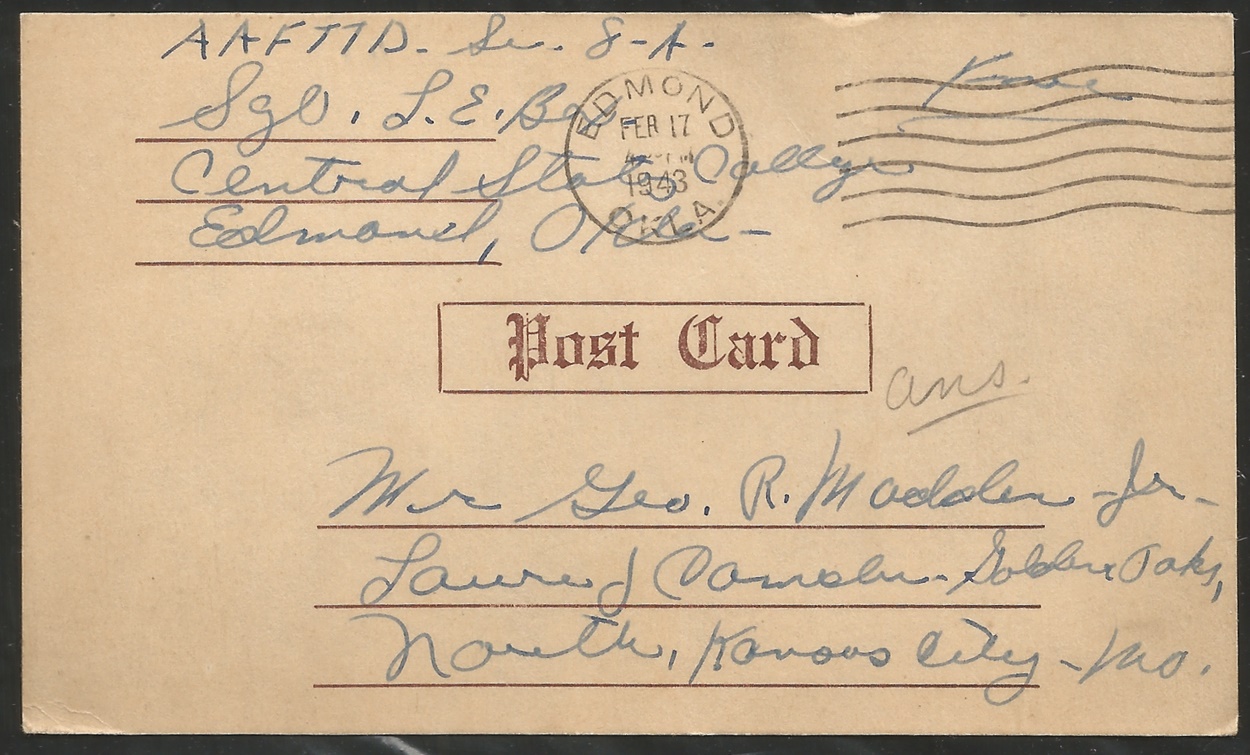 AAFTTD - Sec. 8-A -
Sgt. L. E. Box
Free
Central State College
Edmond, Okla -
EDMOND
FEB 17
PM
1943
OKLA.
Post Card
ans.
Mr Geo. R. Madden - Jr -
Golden Oaks,
North, Kansas City - Mo.